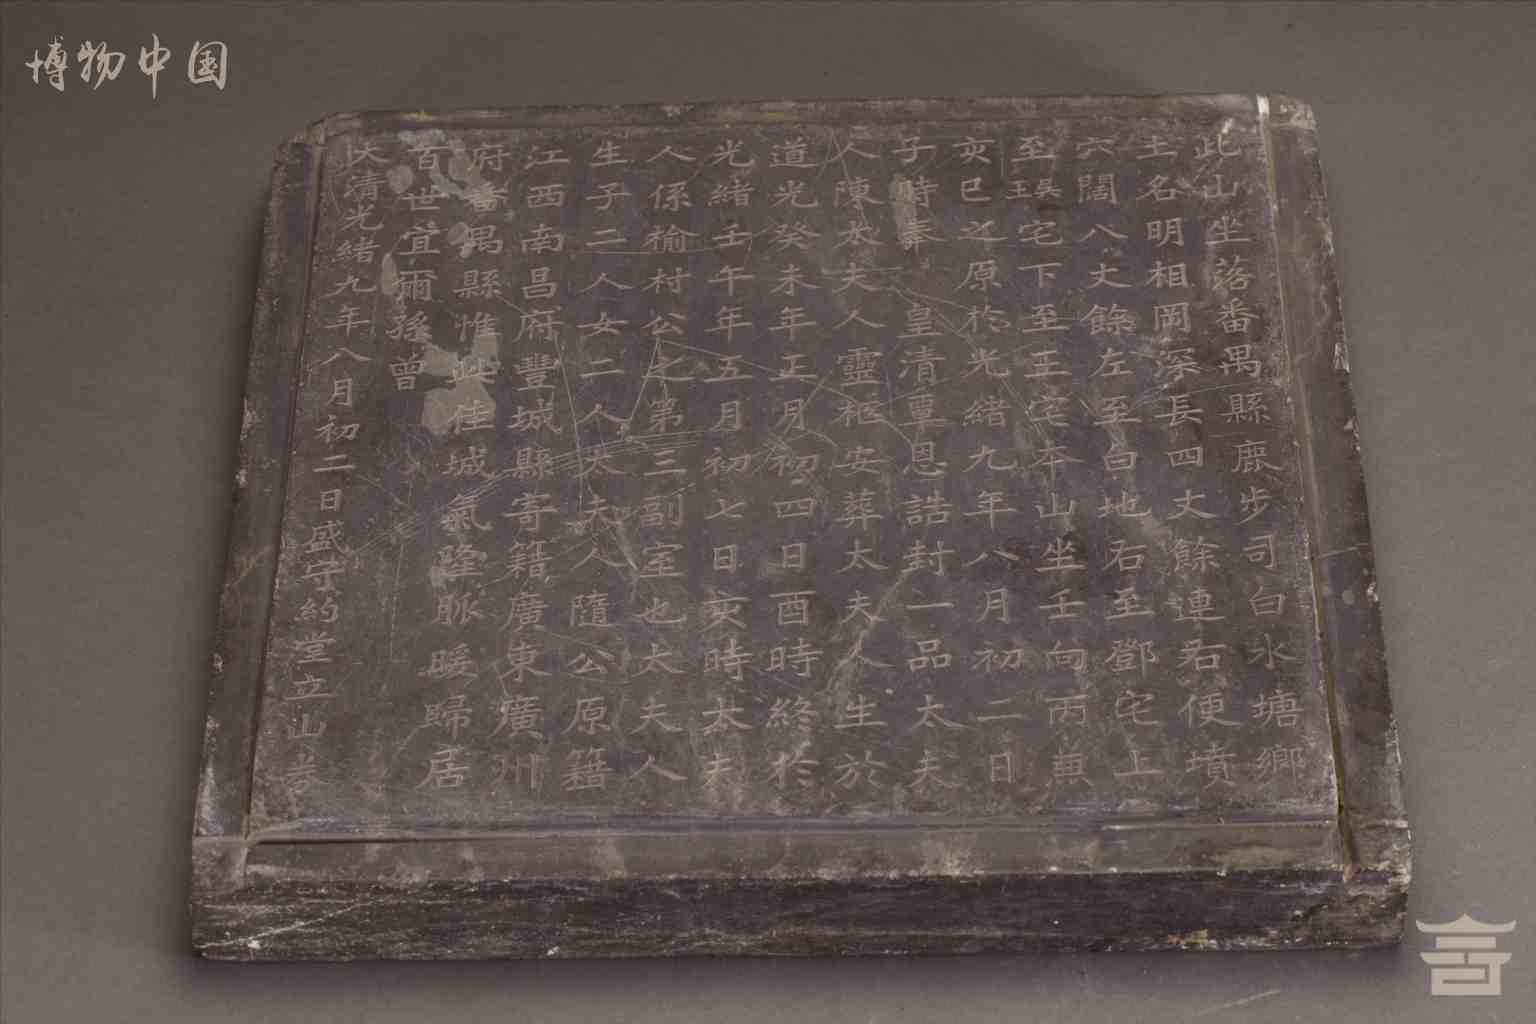 博物中国
此山坐落番禺縣鹿步司白水塘鄉
主名明相岡深長四丈餘連石便墳
穴闊八丈餘左至白地右至鄧宅上
至琪宅下至王宅本山坐壬向丙兼
亥巳之原於光緒九年八月初二日
子時奉 皇清覃恩誥封一品太夫
人陳太夫人靈柩安葬太夫人生於
道光癸未年正月初四日酉時終於
光緒壬午年五月初七日亥時太夫
人係榆村公之第三副室也太夫人
生子二人女二人太夫人隨公原籍
江西南昌府豐城縣寄籍廣東廣州
府番禺縣惟此佳城氣隆脈暖歸居
百世宜爾孫曾
大清光緒九年八月初二日盛守約堂立山券